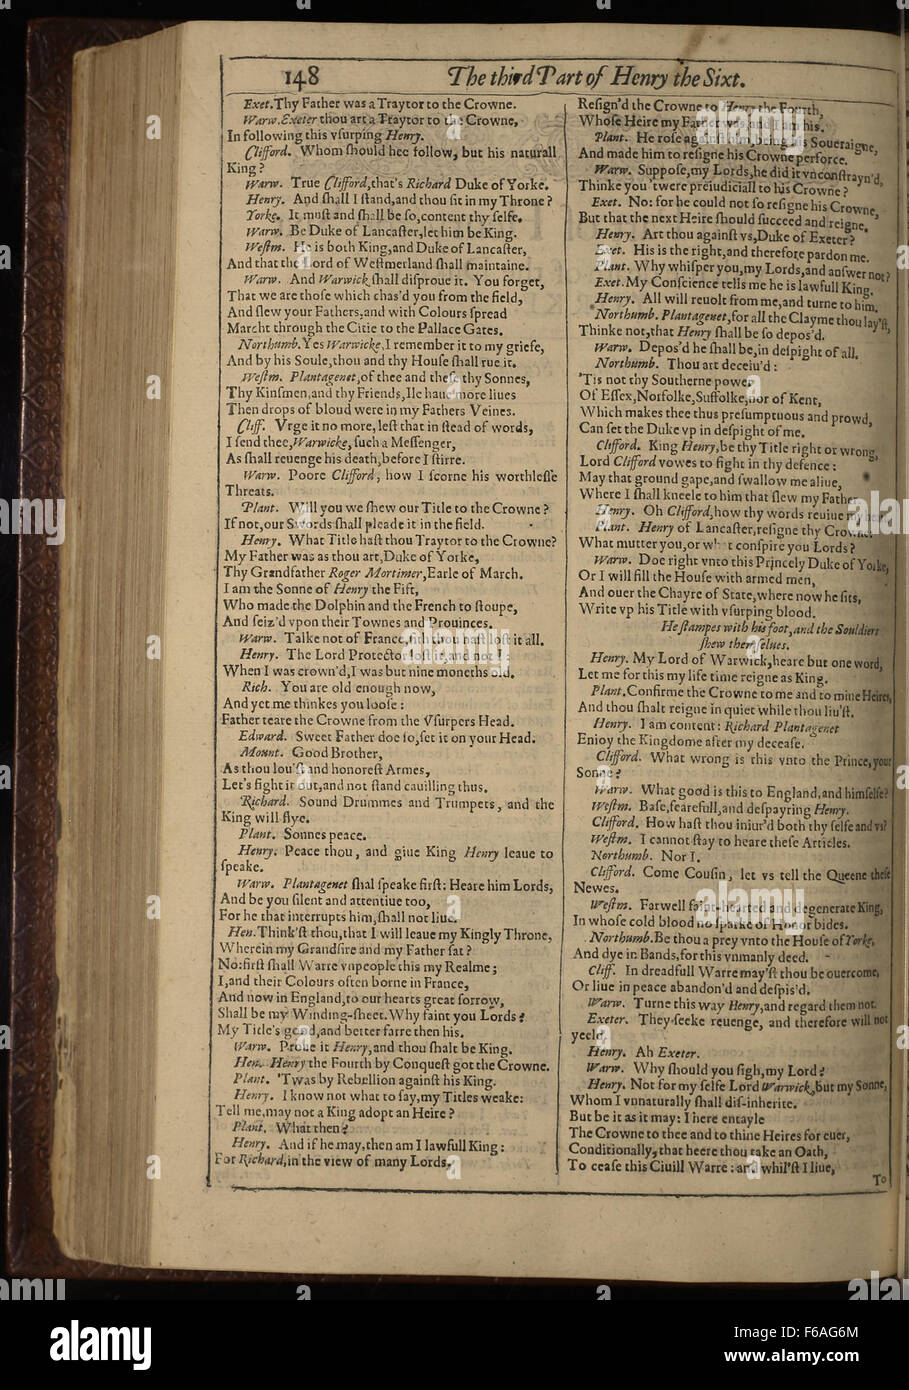 148 The third Part of Henry the Sixt.
Exet. Thy Father was a Traytor to the Crowne.
Warw. Exeter thou art a Traytor to the Crowne,
In following this vſurping Henry.
Clifford. Whom ſhould hee follow, but his naturall
King?
Warw. True Clifford, that's Richard Duke of Yorke.
Henry. And ſhall I ſtand, and thou ſit in my Throne?
Yorke. It muſt and ſhall be ſo, content thy ſelfe.
Warw. Be Duke of Lancaſter, let him be King.
Weſtm. He is both King, and Duke of Lancaſter,
And that the Lord of Weſtmerland ſhall maintaine.
Warw. And Warwick ſhall diſproue it. You forget,
That we are thoſe which chas'd you from the field,
And ſlew your Fathers, and with Colours ſpread
Marcht through the Citie to the Pallace Gates.
Northumb. Yes Warwicke, I remember it to my griefe,
And by his Soule, thou and thy Houſe ſhall rue it.
Weſtm. Plantagenet, of thee and theſe thy Sonnes,
Thy Kinſmen, and thy Friends, Ile haue more liues
Then drops of bloud were in my Fathers Veines.
Cliff. Vrge it no more, leſt that in ſtead of words,
I ſend thee, Warwicke, ſuch a Meſſenger,
As ſhall reuenge his death, before I ſtirre.
Warw. Poore Clifford, how I ſcorne his worthleſſe
Threats.
Plant. Will you we ſhew our Title to the Crowne?
If not, our Swords ſhall pleade it in the field.
Henry. What Title haſt thou Traytor to the Crowne?
My Father was as thou art, Duke of Yorke,
Thy Grandfather Roger Mortimer, Earle of March.
I am the Sonne of Henry the Fift,
Who made the Dolphin and the French to ſtoupe,
And ſeiz'd vpon their Townes and Prouinces.
Warw. Talke not of France, ſith thou haſt loſt it all.
Henry. The Lord Protector loſt it, and not I:
When I was crown'd, I was but nine moneths old.
Rich. You are old enough now,
And yet me thinkes you looſe:
Father teare the Crowne from the Vſurpers Head.
Edward. Sweet Father doe ſo, ſet it on your Head.
Mount. Good Brother,
As thou lou'ſt and honoreſt Armes,
Let's fight it out, and not ſtand cauilling thus.
Richard. Sound Drummes and Trumpets, and the
King will flye.
Plant. Sonnes peace.
Henry. Peace thou, and giue King Henry leaue to
ſpeake.
Warw. Plantagenet ſhal ſpeake firſt: Heare him Lords,
And be you ſilent and attentiue too,
For he that interrupts him, ſhall not liue.
Hen. Think'ſt thou, that I will leaue my Kingly Throne,
Wherein my Grandſire and my Father ſat?
No: firſt ſhall Warre vnpeople this my Realme;
I, and their Colours often borne in France,
And now in England, to our hearts great ſorrow,
Shall be my Winding-ſheet. Why faint you Lords?
My Title's good, and better farre then his.
Warw. Proue it Henry, and thou ſhalt be King.
Hen. Henry the Fourth by Conqueſt got the Crowne.
Plant. 'Twas by Rebellion againſt his King.
Henry. I know not what to ſay, my Titles weake:
Tell me, may not a King adopt an Heire?
Plant. What then?
Henry. And if he may, then am I lawfull King:
For Richard, in the view of many Lords,
Reſign'd the Crowne to Henry the Fourth,
Whoſe Heire my Father was, and I am his.
Plant. He roſe againſt him, being his Soueraigne,
And made him to reſigne his Crowne perforce.
Warw. Suppoſe, my Lords, he did it vnconſtrayn'd,
Thinke you 'twere preiudiciall to his Crowne?
Exet. No: for he could not ſo reſigne his Crowne,
But that the next Heire ſhould ſucceed and reigne.
Henry. Art thou againſt vs, Duke of Exeter?
Exet. His is the right, and therefore pardon me.
Plant. Why whiſper you, my Lords, and anſwer not?
Exet. My Conſcience tells me he is lawfull King.
Henry. All will reuolt from me, and turne to him.
Northumb. Plantagenet, for all the Clayme thou lay'ſt,
Thinke not, that Henry ſhall be ſo depos'd.
Warw. Depos'd he ſhall be, in deſpight of all.
Northumb. Thou art deceiu'd:
'Tis not thy Southerne power
Of Eſſex, Norfolke, Suffolke, nor of Kent,
Which makes thee thus preſumptuous and prowd,
Can ſet the Duke vp in deſpight of me.
Clifford. King Henry, be thy Title right or wrong,
Lord Clifford vowes to fight in thy defence:
May that ground gape, and ſwallow me aliue,
Where I ſhall kneele to him that ſlew my Father.
Henry. Oh Clifford, how thy words reuiue my
Plant. Henry of Lancaſter, reſigne thy Crowne:
What mutter you, or what conſpire you Lords?
Warw. Doe right vnto this Princely Duke of Yorke,
Or I will fill the Houſe with armed men,
And ouer the Chayre of State, where now he ſits,
Write vp his Title with vſurping blood.
He ſtampes with his foot, and the Souldiers
ſhew themſelues.
Henry. My Lord of Warwick, heare but one word,
Let me for this my life time reigne as King.
Plant. Confirme the Crowne to me and to mine Heires,
And thou ſhalt reigne in quiet while thou liu'ſt.
Henry. I am content: Richard Plantagenet
Enioy the Kingdome after my deceaſe.
Clifford. What wrong is this vnto the Prince, your
Sonne?
Warw. What good is this to England, and himſelfe?
Weſtm. Baſe, fearefull, and deſpayring Henry.
Clifford. How haſt thou iniur'd both thy ſelfe and vs?
Weſtm. I cannot ſtay to heare theſe Articles.
Northumb. Nor I.
Clifford. Come Couſin, let vs tell the Queene theſe
Newes.
Weſtm. Farwell faint-hearted and degenerate King,
In whoſe cold blood no ſparke of Honor bides.
Northumb. Be thou a prey vnto the Houſe of Yorke,
And dye in Bands, for this vnmanly deed.
Cliff. In dreadfull Warre may'ſt thou be ouercome,
Or liue in peace abandon'd and deſpis'd.
Warw. Turne this way Henry, and regard them not.
Exeter. They ſeeke reuenge, and therefore will not
yeeld.
Henry. Ah Exeter.
Warw. Why ſhould you ſigh, my Lord?
Henry. Not for my ſelfe Lord Warwick, but my Sonne,
Whom I vnnaturally ſhall diſ-inherite.
But be it as it may: I here entayle
The Crowne to thee and to thine Heires for euer,
Conditionally, that heere thou take an Oath,
To ceaſe this Ciuill Warre: and whil'ſt I liue,
To
alamy
Image ID: F6AG6M
www.alamy.com